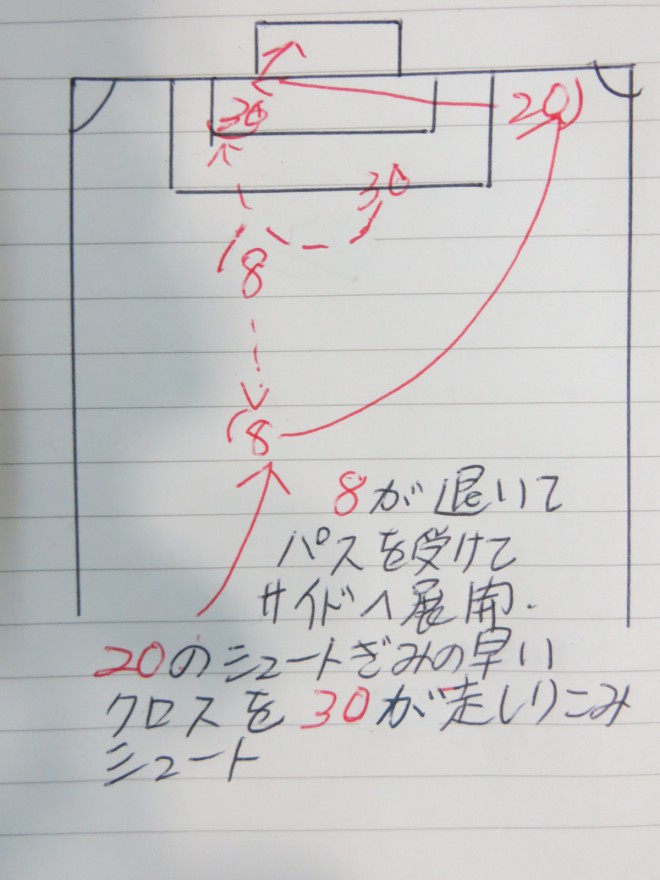 30
20
30
8
8
8が退いて
パスを受けて
サイドへ展開.
20のシュートぎみの早い
クロスを30が走しりこみ
シュート